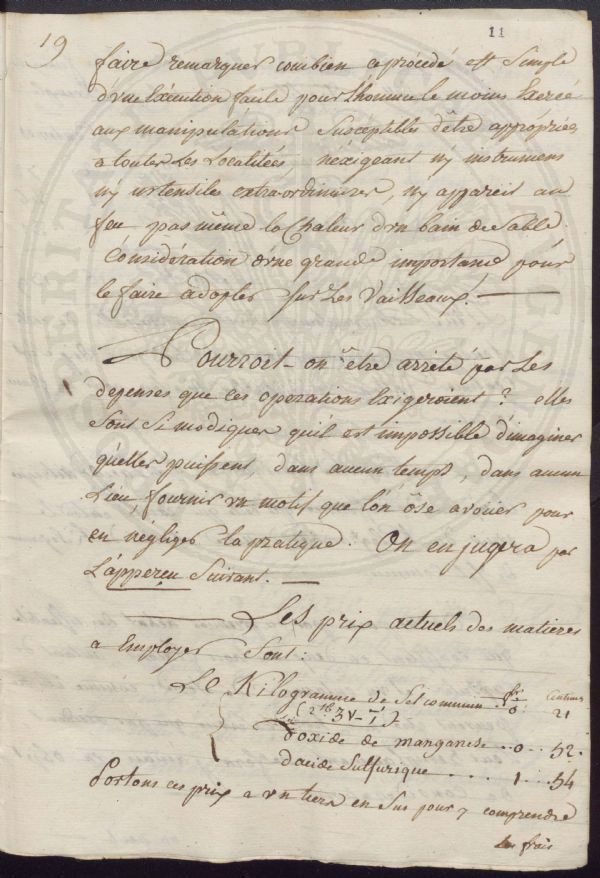 19
11
faire remarquer combien ce procédé est Simple
d'une Exécution facile pour l'homme le moins Exercé
aux manipulations Susceptibles d'être appropriées
a toutes Les Localitées n'éxigeant n'y instrumens
n'y ustensiles extraordinaires, n'y appareil au
feu pas même la Chaleur d'un bain de Sable.
Considération d'une grande importance pour
le faire adopter Sur Les Vaisseaux. —
Pourroit-on être arrêté par Les
depenses que ces operations Exigeroient ? elles
Sont Si modiques qu'il est impossible d'imaginer
qu'elles puissent, dans aucun temps, dans aucun
Lieu, fournir un motif que l'on ôse avouer pour
en négliger la pratique. On en jugera par
L'apperçu Suivant. —
— Les prix actuels des matieres
a Employer Sont :
Le Kilogramme de Sel commun fr. 0. Centimes 21
d'oxide de manganese .. 0 .. 52.
d'acide Sulfurique .... 1 .. 54
Portons ces prix a un tiers en Sus pour y comprendre
les frais